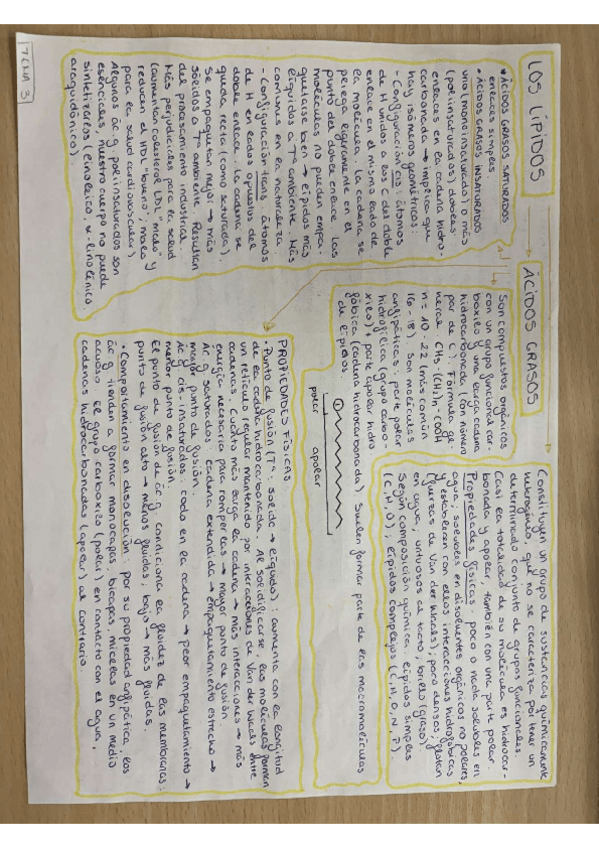 TEMA 3
LOS LÍPIDOS
Constituyen un grupo de sustancias químicamente
heterogéneo, que no se caracteriza por tener un
determinado conjunto de grupos funcionales.
Casi la totalidad de su molécula es hidrocar-
bonada y apolar, también con una parte polar.
Propiedades físicas: poco o nada solubles en
agua; solubles en disolventes orgánicos no polares,
y establecen con ellos interacciones hidrofóbicas
(fuerzas de Van der Waals); poco densos, flotan
en agua, untuosos al tacto, brillo (graso).
Según composición química: lípidos simples
(C, H, O); lípidos complejos (C, H, O, N, P).
ÁCIDOS GRASOS
Son compuestos orgánicos
con un grupo funcional car-
boxilo y una larga cadena
hidrocarbonada (con número
par de C). Fórmula ge-
neral CH3-(CH2)n-COOH
n = 10-22 (más común
16-18). Son moléculas
anfipáticas: parte polar
hidrofílica (grupo carbo-
xilo) y parte apolar hidro
fóbica (cadena hidrocarbonada) Suelen formar parte de las macromoléculas
de lípidos
polar
apolar
• ÁCIDOS GRASOS SATURADOS
enlaces simples
• ÁCIDOS GRASOS INSATURADOS
uno (monoinsaturado) o más
(poliinsaturados) dobles
enlaces en la cadena hidro-
carbonada → implica que
hay isómeros geométricos:
- Configuración cis: átomos
de H unidos a los C del doble
enlace en el mismo lado de
la molécula, la cadena se
pliega ligeramente en el
punto del doble enlace. Las
moléculas no pueden empa-
quetarse bien → lípidos más
líquidos a Tª ambiente. Más
comunes en la naturaleza
- Configuración trans: átomos
de H en lados opuestos del
doble enlace. La cadena se
queda recta (como saturada).
Se empaquetan mejor → más
sólidos a Tª ambiente. Resultan
del procesamiento industrial.
Más perjudiciales para la salud
(aumentan colesterol LDL "malo" y
reducen el HDL "bueno"; malo
para la salud cardiovascular)
Algunos ác.g. poliinsaturados son
esenciales, nuestro cuerpo no puede
sintetizarlos (linoleico, α-linolénico,
araquidónico).
PROPIEDADES FÍSICAS
• Punto de fusión (Tª: sólido → líquido): aumenta con la longitud
de la cadena hidrocarbonada. Al solidificarse, las moléculas forman
un retículo regular mantenido por interacciones de Van der Waals entre
cadenas. Cuánto más larga la cadena → más interacciones → más
energía necesaria para romperlas → mayor punto de fusión
Ác g saturados: cadena extendida → empaquetamiento estrecho →
mayor punto de fusión
Ác g cis-insaturados: codo en la cadena → peor empaquetamiento →
menor punto de fusión.
El punto de fusión de ác.g. condiciona la fluidez de las membranas:
punto de fusión alto → menos fluidas; bajo → más fluidas.
• Comportamiento en disolución: por su propiedad anfipática, los
ác g tienden a formar monocapas, bicapas, micelas en un medio
acuoso. El grupo carboxilo (polar) en contacto con el agua,
cadenas hidrocarbonadas (apolar) al contrario.